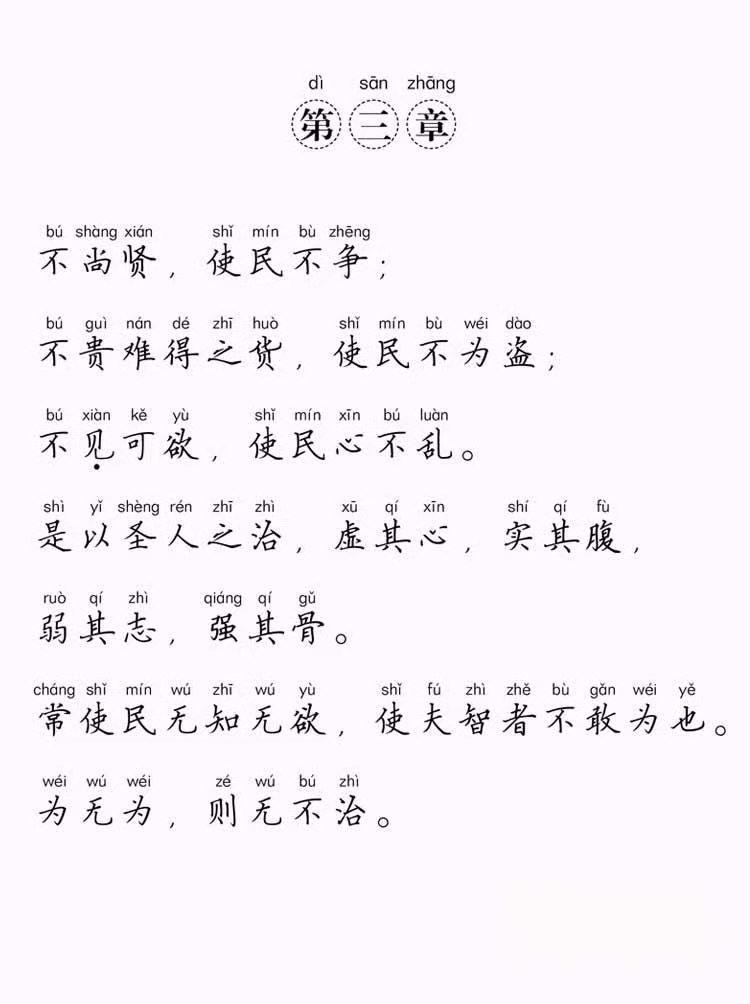 dì sān zhāng
第三章
bú shàng xián shǐ mín bù zhēng
不尚贤，使民不争；
bú guì nán dé zhī huò shǐ mín bù wéi dào
不贵难得之货，使民不为盗；
bú xiàn kě yù shǐ mín xīn bú luàn
不见可欲，使民心不乱。
shì yǐ shèng rén zhī zhì xū qí xīn shí qí fù
是以圣人之治，虚其心，实其腹，
ruò qí zhì qiáng qí gǔ
弱其志，强其骨。
cháng shǐ mín wú zhī wú yù shǐ fú zhì zhě bù gǎn wéi yě
常使民无知无欲，使夫智者不敢为也。
wéi wú wéi zé wú bú zhì
为无为，则无不治。